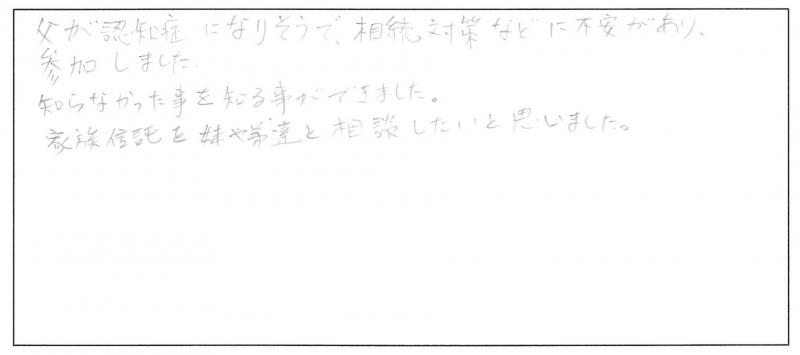 父が認知症になりそうで、相続対策などに不安があり、
参加しました.
知らなかった事を知る事ができました。
家族信託を妹や弟達と相談したいと思いました。